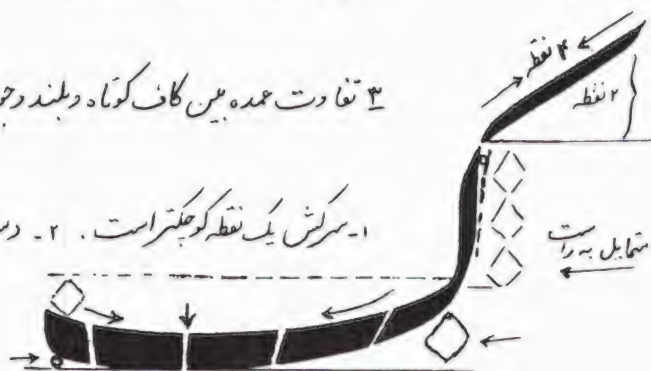 ۴ نقطه
۲ نقطه
۳ تفاوت عمده بین کاف کوتاه و بلند وجو
۱- سرکش یک نقطه کوچکتر است. ۲- دس
متمایل به راست